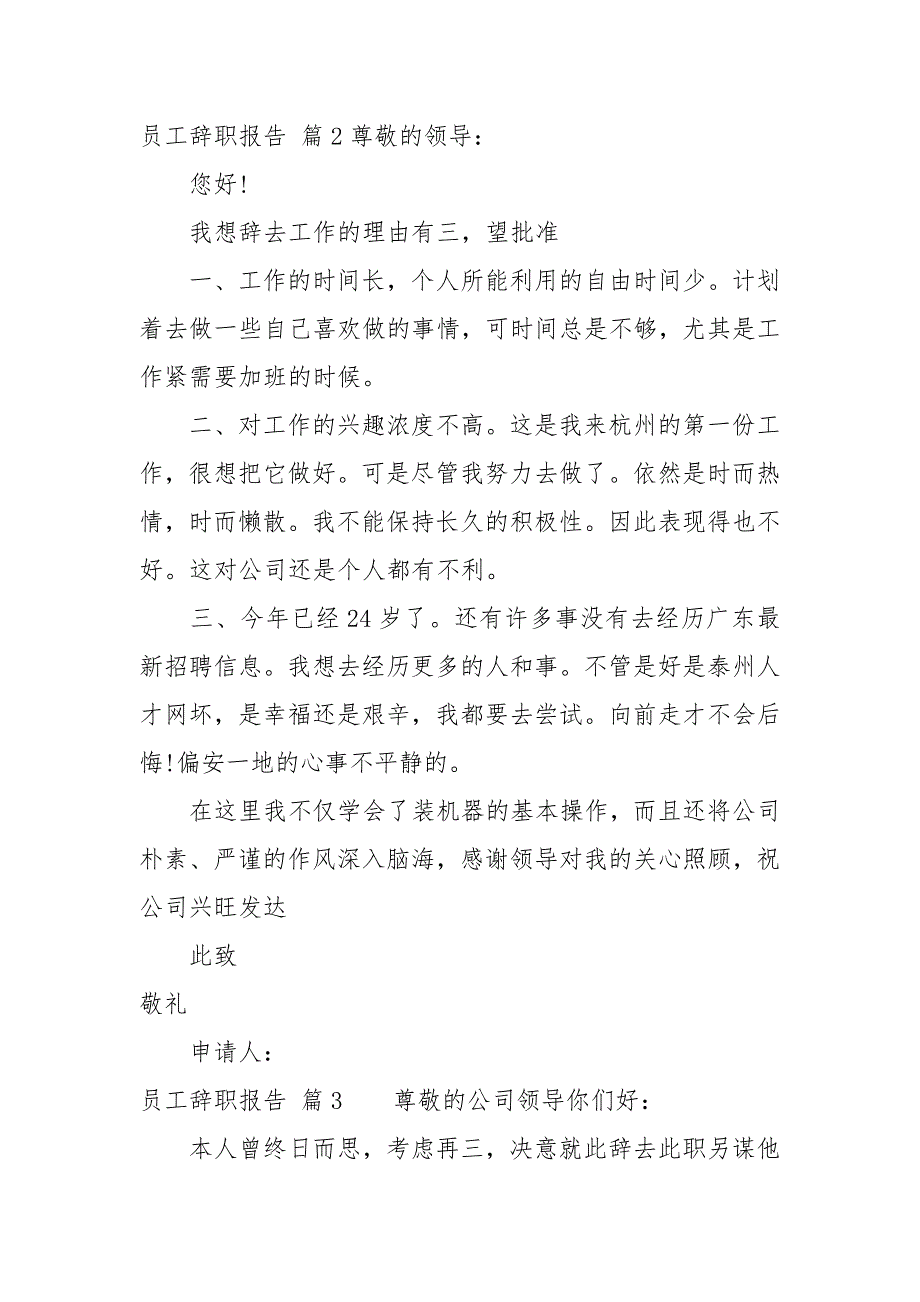 员工辞职报告 篇2尊敬的领导：
您好!
我想辞去工作的理由有三，望批准
一、工作的时间长，个人所能利用的自由时间少。计划
着去做一些自己喜欢做的事情，可时间总是不够，尤其是工
作紧需要加班的时候。
二、对工作的兴趣浓度不高。这是我来杭州的第一份工
作，很想把它做好。可是尽管我努力去做了。依然是时而热
情，时而懒散。我不能保持长久的积极性。因此表现得也不
好。这对公司还是个人都有不利。
三、今年已经24岁了。还有许多事没有去经历广东最
新招聘信息。我想去经历更多的人和事。不管是好是泰州人
才网坏，是幸福还是艰辛，我都要去尝试。向前走才不会后
悔!偏安一地的心事不平静的。
在这里我不仅学会了装机器的基本操作，而且还将公司
朴素、严谨的作风深入脑海，感谢领导对我的关心照顾，祝
公司兴旺发达
此致
敬礼
申请人：
员工辞职报告 篇3 尊敬的公司领导你们好：
本人曾终日而思，考虑再三，决意就此辞去此职另谋他